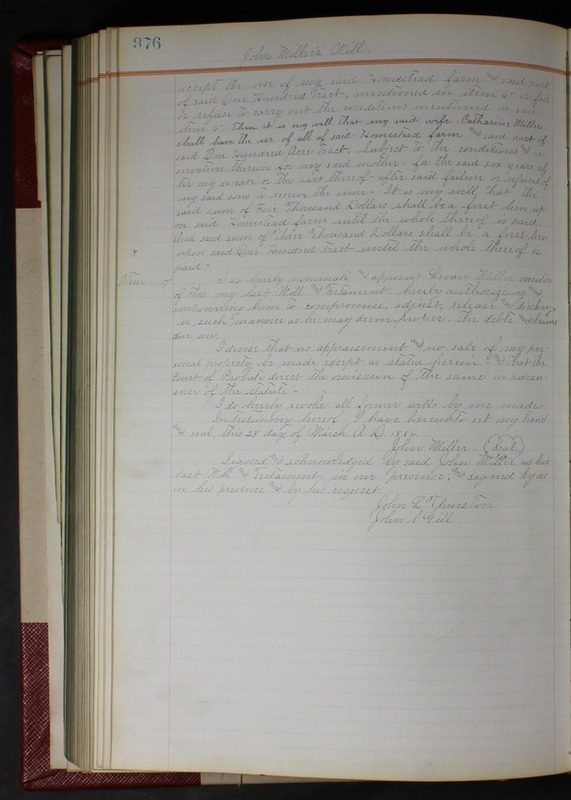 376
John Miller's Will.
except the use of my said Homestead farm and said part
of said One Hundred Tract, mentioned in item 5" or fail
or refuse to carry out the conditions mentioned in said
item 5" Then it is my will that my said wife Catharine Miller
shall have the use of all of said Homestead farm and said part of
said One Hundred Acre Tract, Subject to the conditions and
ervation therein for my said mother for the said six years af-
ter my decease or the part thereof after said failure or refusal of
my said sons to the same - It is my will that the
said sum of Five Thousand Dollars shall be a first lien up-
on said Homestead farm until the whole thereof is paid.
And said sum of Three Thousand Dollars shall be a first lien
upon said One Hundred tract until the whole thereof is
paid -
Item 7" I do hereby nominate and appoint Miller executor
of this my last Will and Testament hereby authorizing and
empowering him to compromise, adjust, release and discharge
in such manner as he may deem proper, the debts and claims
due me.
I desire that no appraisement and no sale of my per-
sonal property be made except as stated herein, and that the
Court of Probate direct the omission of the same in pursu-
ance of the statute -
I do hereby revoke all former wills by me made
In testimony hereof I have hereunto set my hand
and seal, this 28" day of March A.D. 1884.
John Miller. (Seal)
Signed and acknowledged by said John Miller as his
last Will and Testament in our presence, and signed by us
in his presence and by his request.
John L Thurston
John S Gill